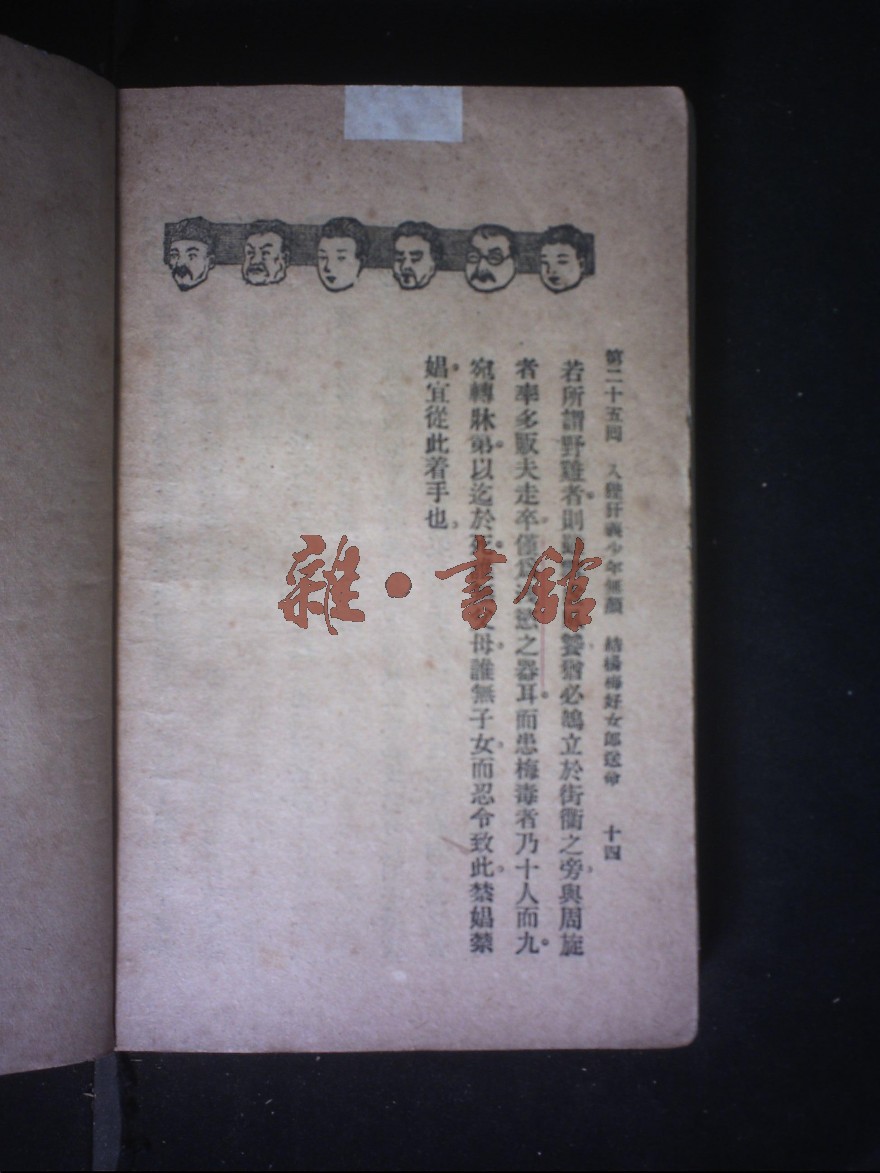 第二十五回 入 少年無顏 結楊梅好女郎送命 十四
若所謂野雞者則 猶必鵠立於街衢之旁與周旋
者率多販夫走卒僅爲 慾之器耳而患梅毒者乃十人而九
宛轉牀第以迄於死 母誰無子女而忍令致此禁娼禁
娼宜從此着手也
雜·書館